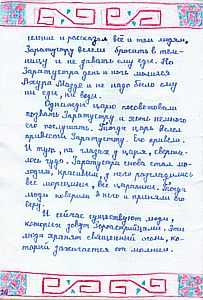 селище и рассказал всё и тем людям.
Заратустру велели бросить в тем-
ницу и не давать ему еды. Но
Заратустра день и ночь молился
Ахура Мазде и не надо было ему
ни еды, ни воды.
Однажды царю посоветовали
позвать Заратустру и хоть немного
его послушать. Тогда царь велел
привести Заратустру. Его привели.
И тут, на глазах у царя, сверши-
лось чудо. Заратустра снова стал мо-
лодым, красивым, у него разгладились
все морщинки, все царапины. Тогда
люди поверили в него и приняли его
веру.
И сейчас существуют люди,
которых зовут Зороастрийцами. Эти
люди хранят священный огонь, ко-
торый зажигается от молнии.